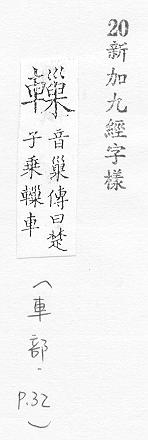 20新加九經字樣
轈
音巢傳曰楚
子乘轈車
(車部.
P.32)